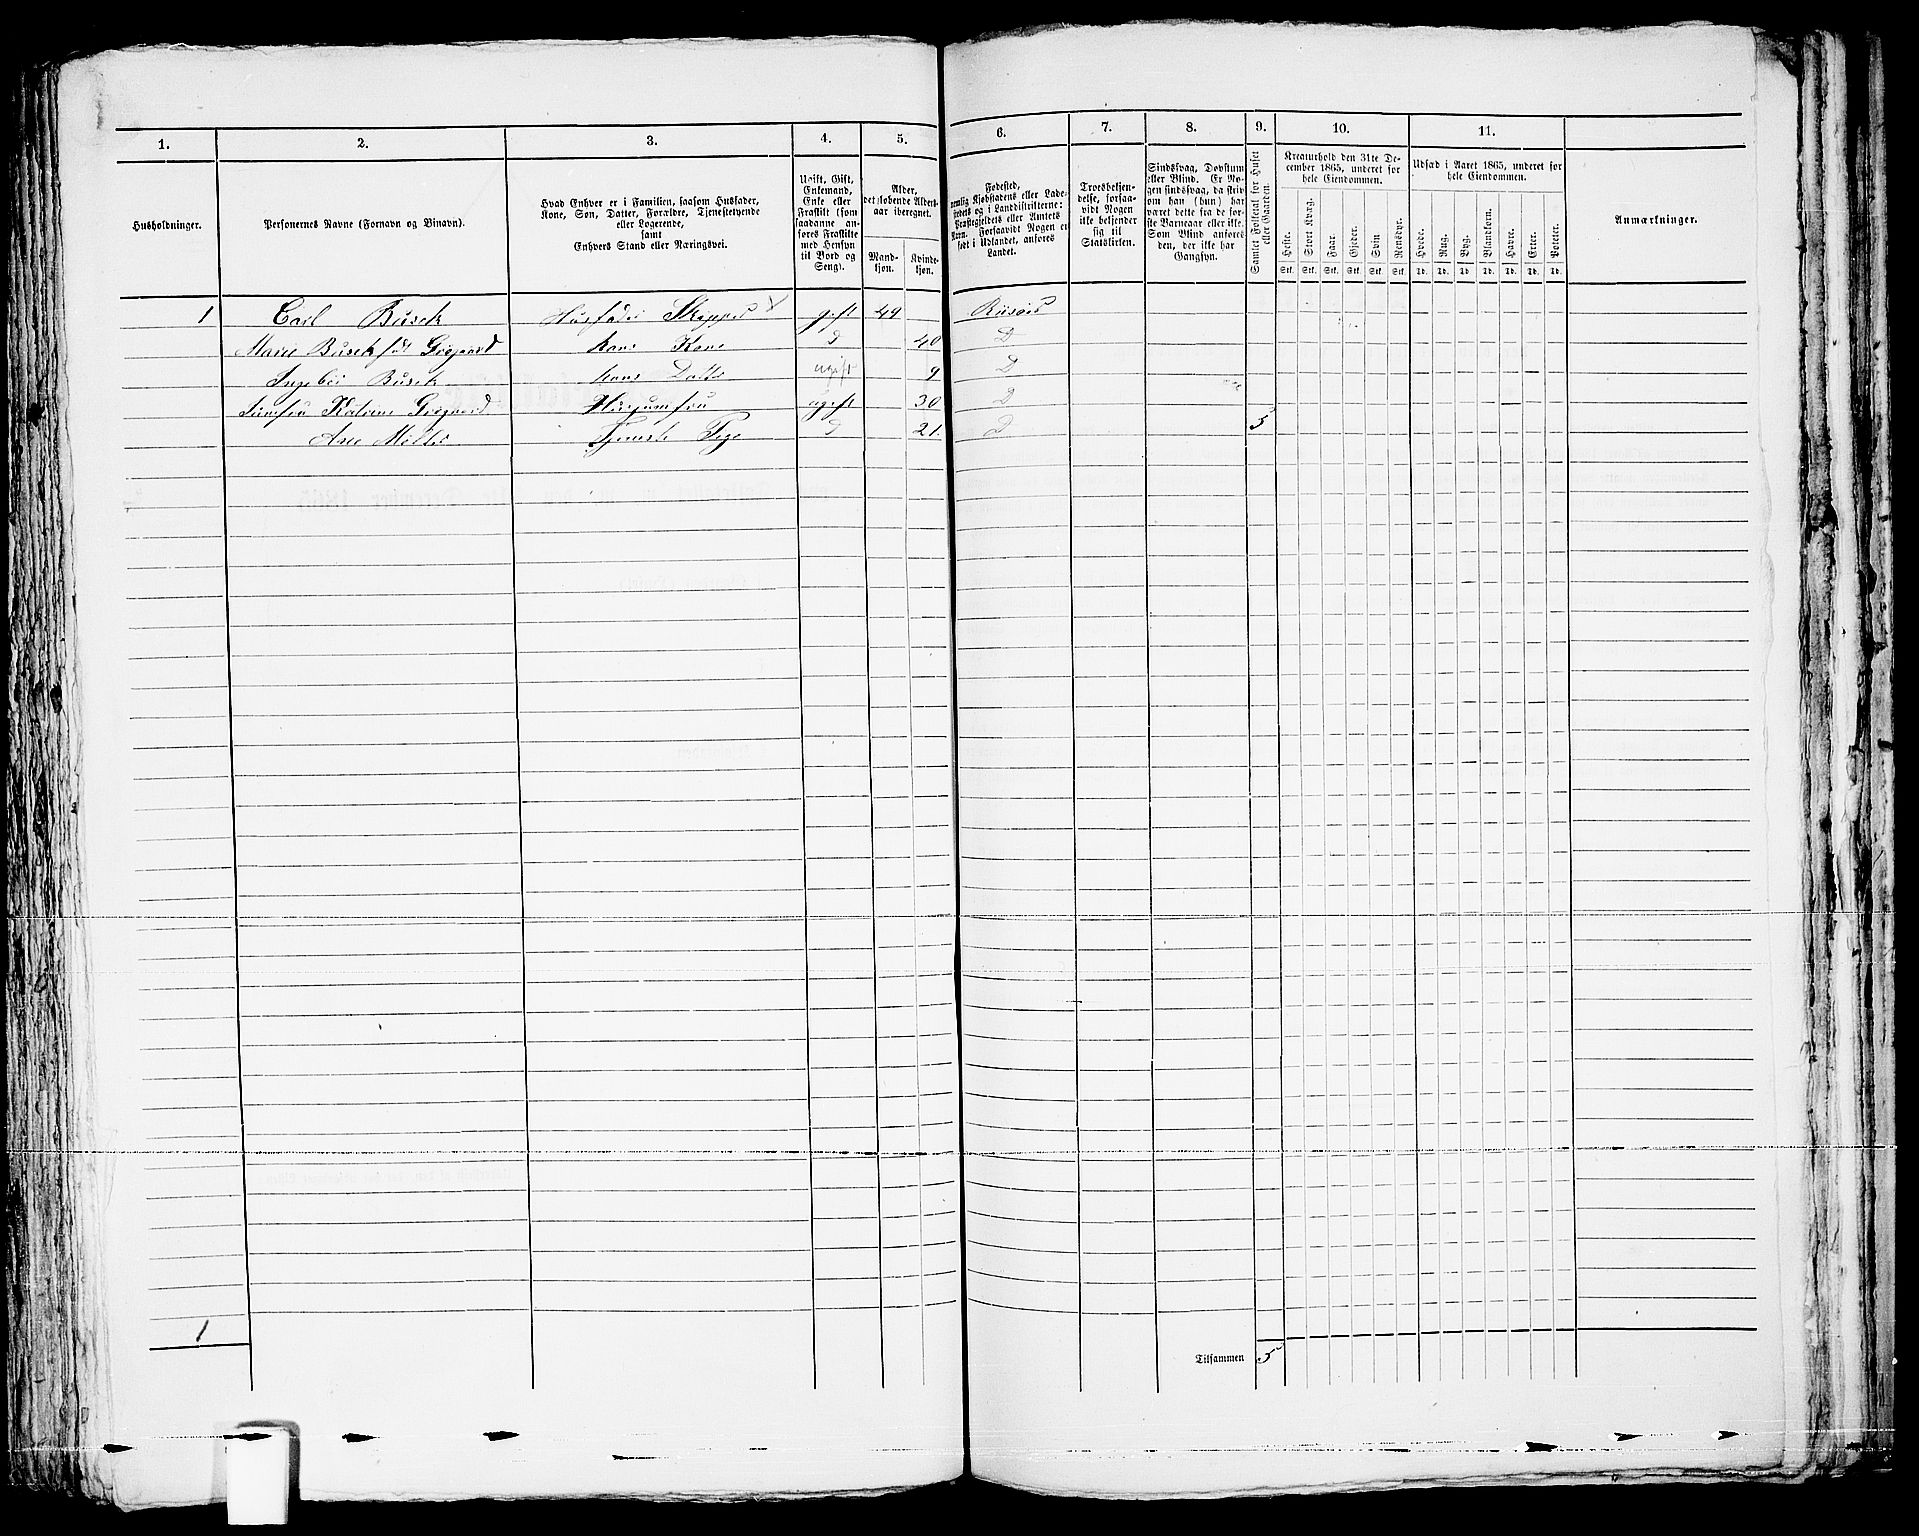 1. 2. 3. 4. 5. 6. 7. 8. 9. 10. 11.
Husholdninger.
Personernes Navne (Fornavn og Binavn).
Hvad Enhver er i Familien, saasom Husfader,
Kone, Søn, Datter, Forældre, Tjenestetyende
eller Logerende,
samt
Enhvers Stand eller Næringsvei.
Ugift, Gift,
Enkemand,
Enke eller
Fraskilt (som
saadanne an-
føres Fraskilte
med Hensyn
til Bord og
Seng).
Alder,
det løbende Alders-
aar iberegnet.
Mand-
kjøn.
Kvinde-
kjøn.
Fødested,
nemlig Kjøbstadens eller Lade-
stedets og i Landdistrikterne:
Præstegjeldets eller Amtets
Navn. Forsaavidt Nogen er
født i Udlandet, anføres
Landet.
Troesbekjen-
delse, forsaa-
vidt Nogen
ikke bekjender
sig til
Statskirken.
Sindssvag, Døvstum
eller Blind. Er No-
gen sindssvag, da skriv
om han (hun) har
været dette fra de før-
ste Barneaar eller ikke.
Som Blind anføres
den, der ikke har
Gangsyn.
Samlet Folketal for Huset
eller Gaarden.
Kreaturhold den 31te De-
cember 1865, underet for
hele Eiendommen.
Heste. Stort Kvæg. Faar. Gjeder. Svin Rensdyr.
Stk. Stk. Stk. Stk. Stk. Stk.
Udsæd i Aaret 1865, underet for
hele Eiendommen.
Hvede. Rug. Byg. Blandkorn. Havre. Erter. Poteter.
Td. Td. Td Td. Td. Td. Td.
Anmærkninger.
1 Carl Busch Husfader Skipper gift 49 Risøer
Marie Busch født hans Kone D 40 D
Busch hans Datter ugift 9 D
Jomfru Katrine Husjomfru ugift 30 D
Møller Tjeneste Pige D 21. D 5
1
Tilsammen 5